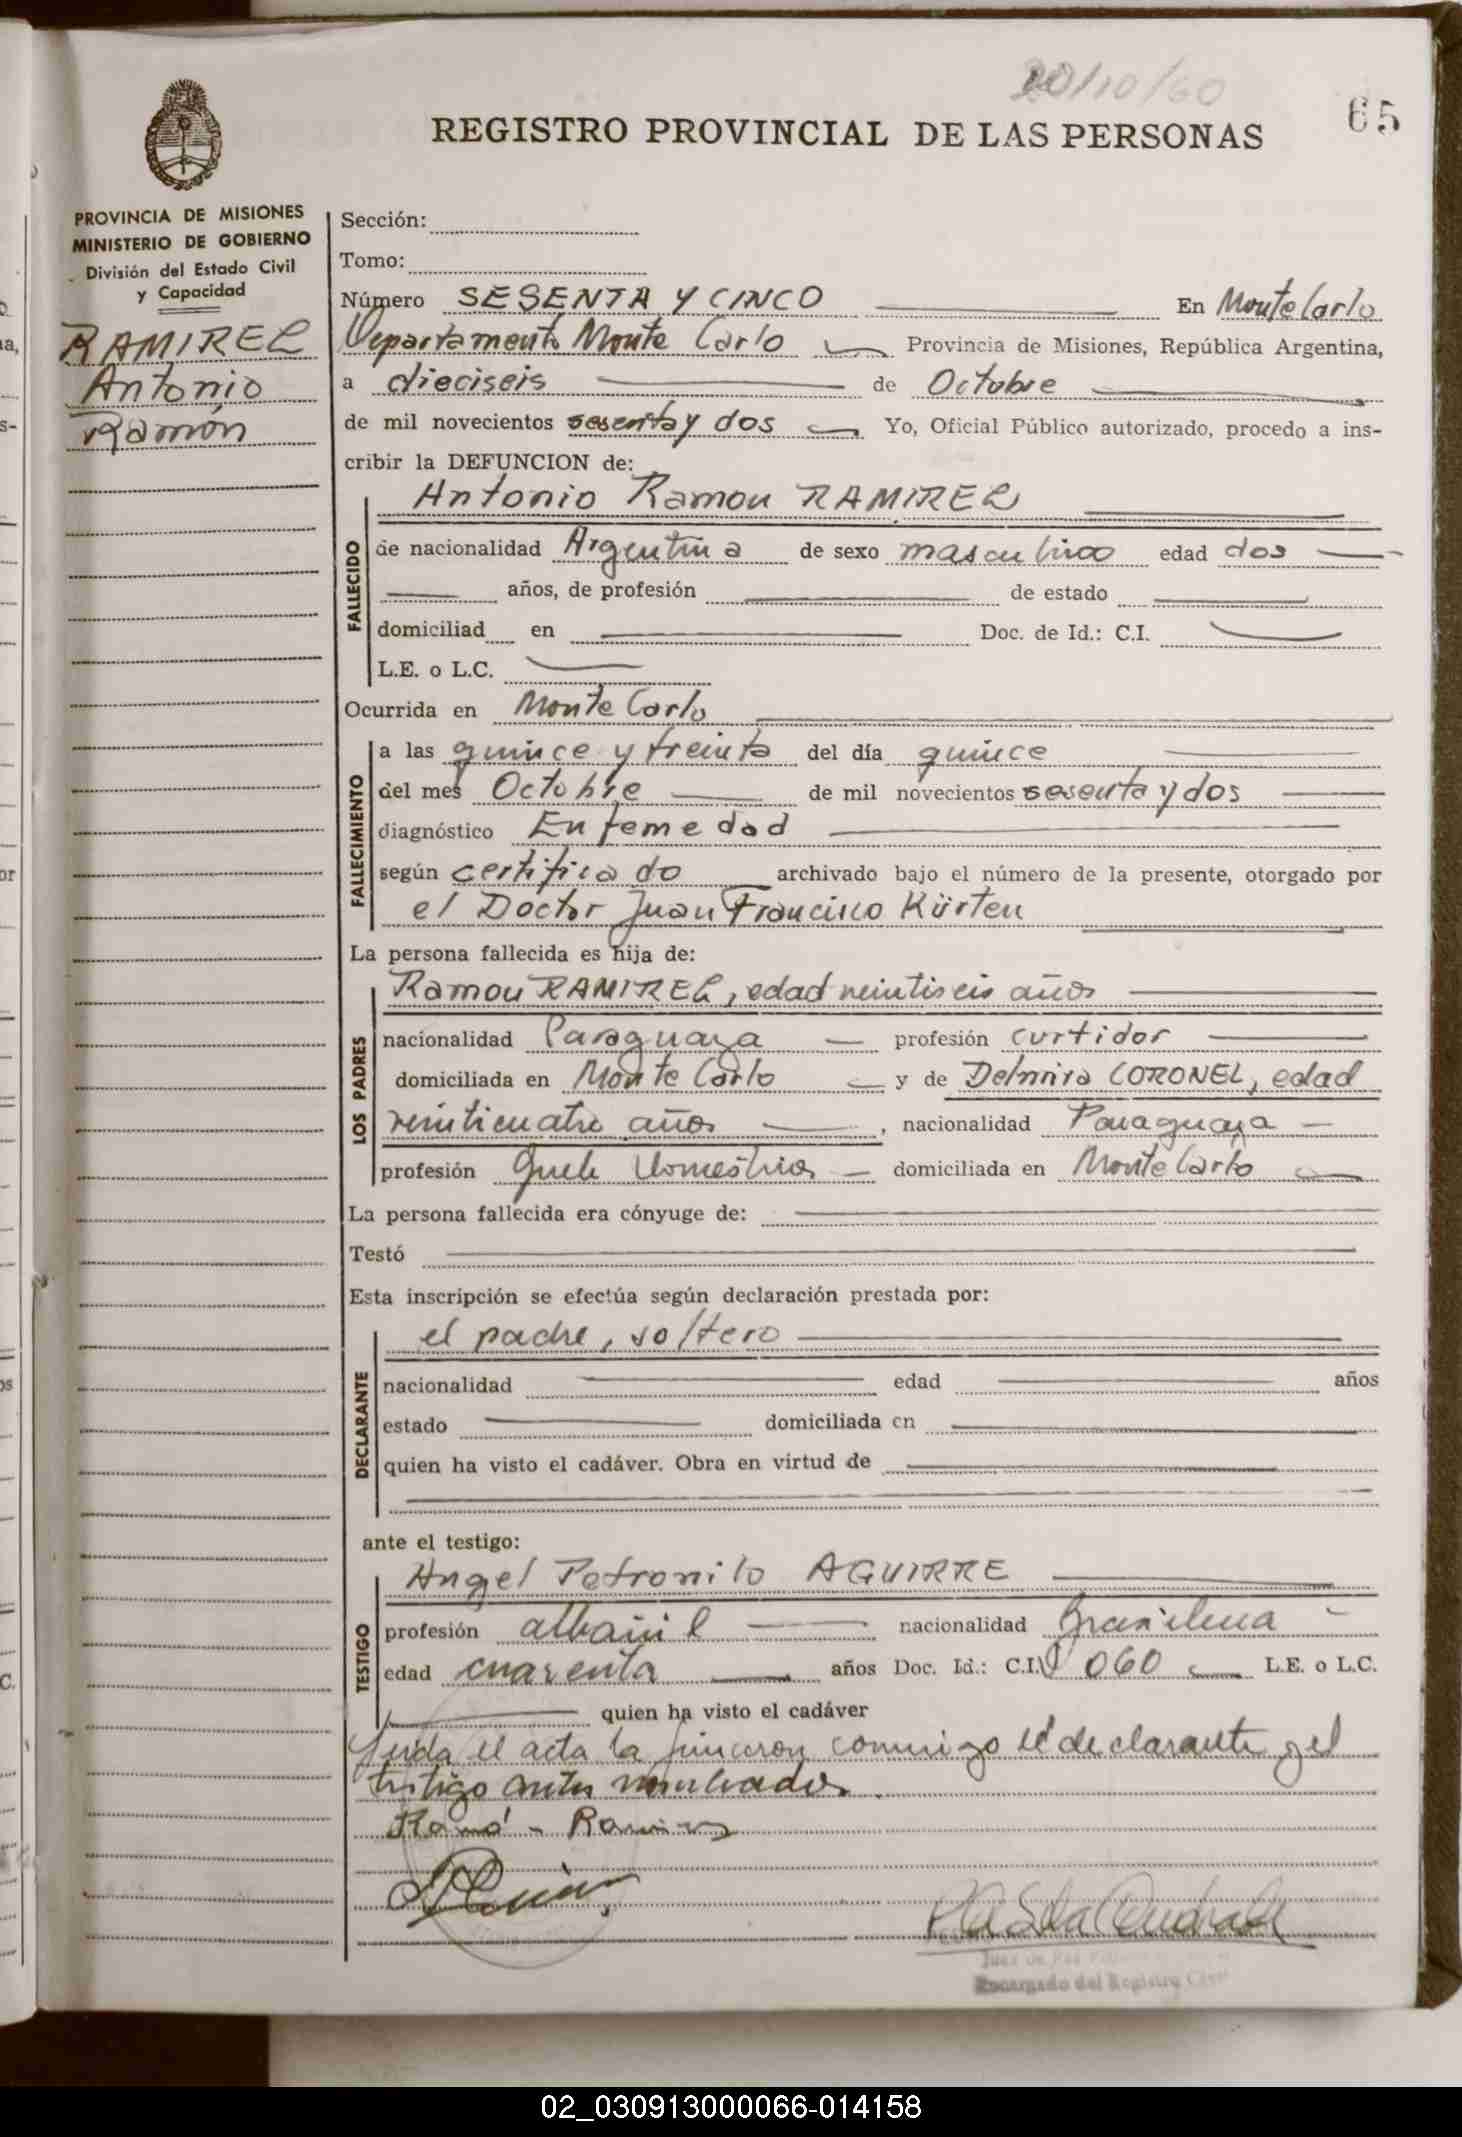 20/10/60
65
REGISTRO PROVINCIAL DE LAS PERSONAS
PROVINCIA DE MISIONES
MINISTERIO DE GOBIERNO
División del Estado Civil
y Capacidad
RAMIREZ
Antonio
Ramón
Sección:
Tomo:
Número SESENTA Y CINCO En Monte Carlo
Departamento Monte Carlo Provincia de Misiones, República Argentina,
a dieciseis de Octubre
de mil novecientos sesenta y dos Yo, Oficial Público autorizado, procedo a ins-
cribir la DEFUNCION de:
Antonio Ramon RAMIREZ
FALLECIDO
de nacionalidad Argentina de sexo masculino edad dos
años, de profesión de estado
domiciliad en Doc. de Id.: C.I.
L.E. o L.C.
Ocurrida en Monte Carlo
FALLECIMIENTO
a las quince y treinta del día quince
del mes Octubre de mil novecientos sesenta y dos
diagnóstico Enfemedad
según certificado archivado bajo el número de la presente, otorgado por
el Doctor Juan Francisco Kürten
La persona fallecida es hija de:
LOS PADRES
Ramon RAMIREZ, edad veintiseis años
nacionalidad Paraguaya profesión curtidor
domiciliada en Monte Carlo y de Delmira CORONEL, edad
veinticuatro años, nacionalidad Paraguaya
profesión Queh. Domésticos domiciliada en Monte Carlo
La persona fallecida era cónyuge de:
Testó
Esta inscripción se efectúa según declaración prestada por:
DECLARANTE
el padre, soltero
nacionalidad edad años
estado domiciliada en
quien ha visto el cadáver. Obra en virtud de
ante el testigo:
TESTIGO
Angel Petronilo AGUIRRE
profesión albañil nacionalidad Brasilena
edad cuarenta años Doc. Id.: C.I. 060 L.E. o L.C.
quien ha visto el cadáver
Leida el acta la firmaron conmigo el declarante y el
testigo antes nombrados.
Ramó - Ramirez
Juez de Paz
Encargado del Registro Civil
02_030913000066-014158